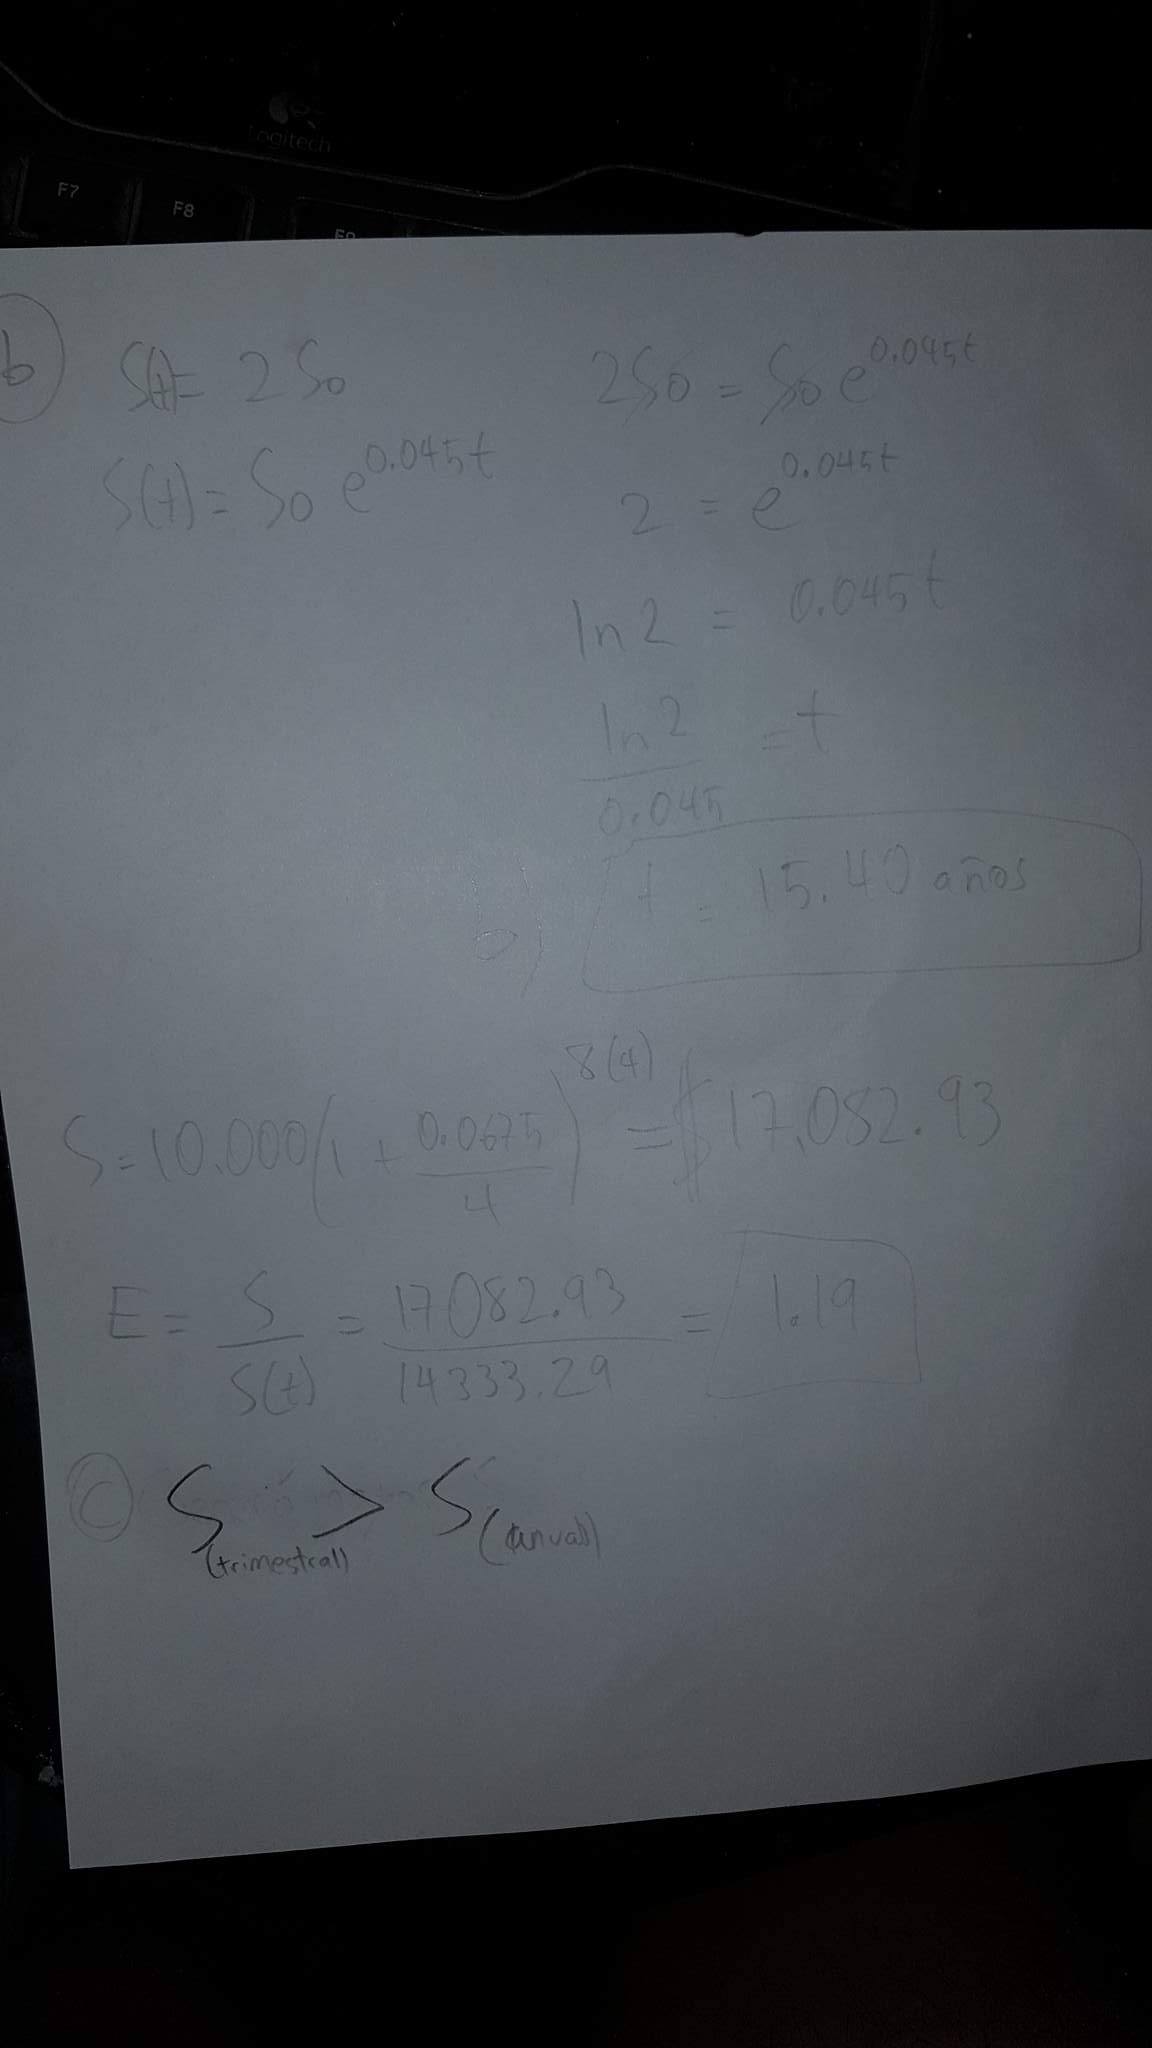 Logitech
F7
F8
F9
b
S(t) = 2 So
S(t) = So e^0.045t
2So = So e^0.045t
2 = e^0.045t
ln 2 = 0.045t
ln 2 / 0.045 = t
b) t = 15.40 años
S = 10.000 (1 + 0.0675 / 4)^8(4) = $17,082.93
E = S / S(t) = 17082.93 / 14333.29 = 1.19
c S(trimestral) > S(anual)